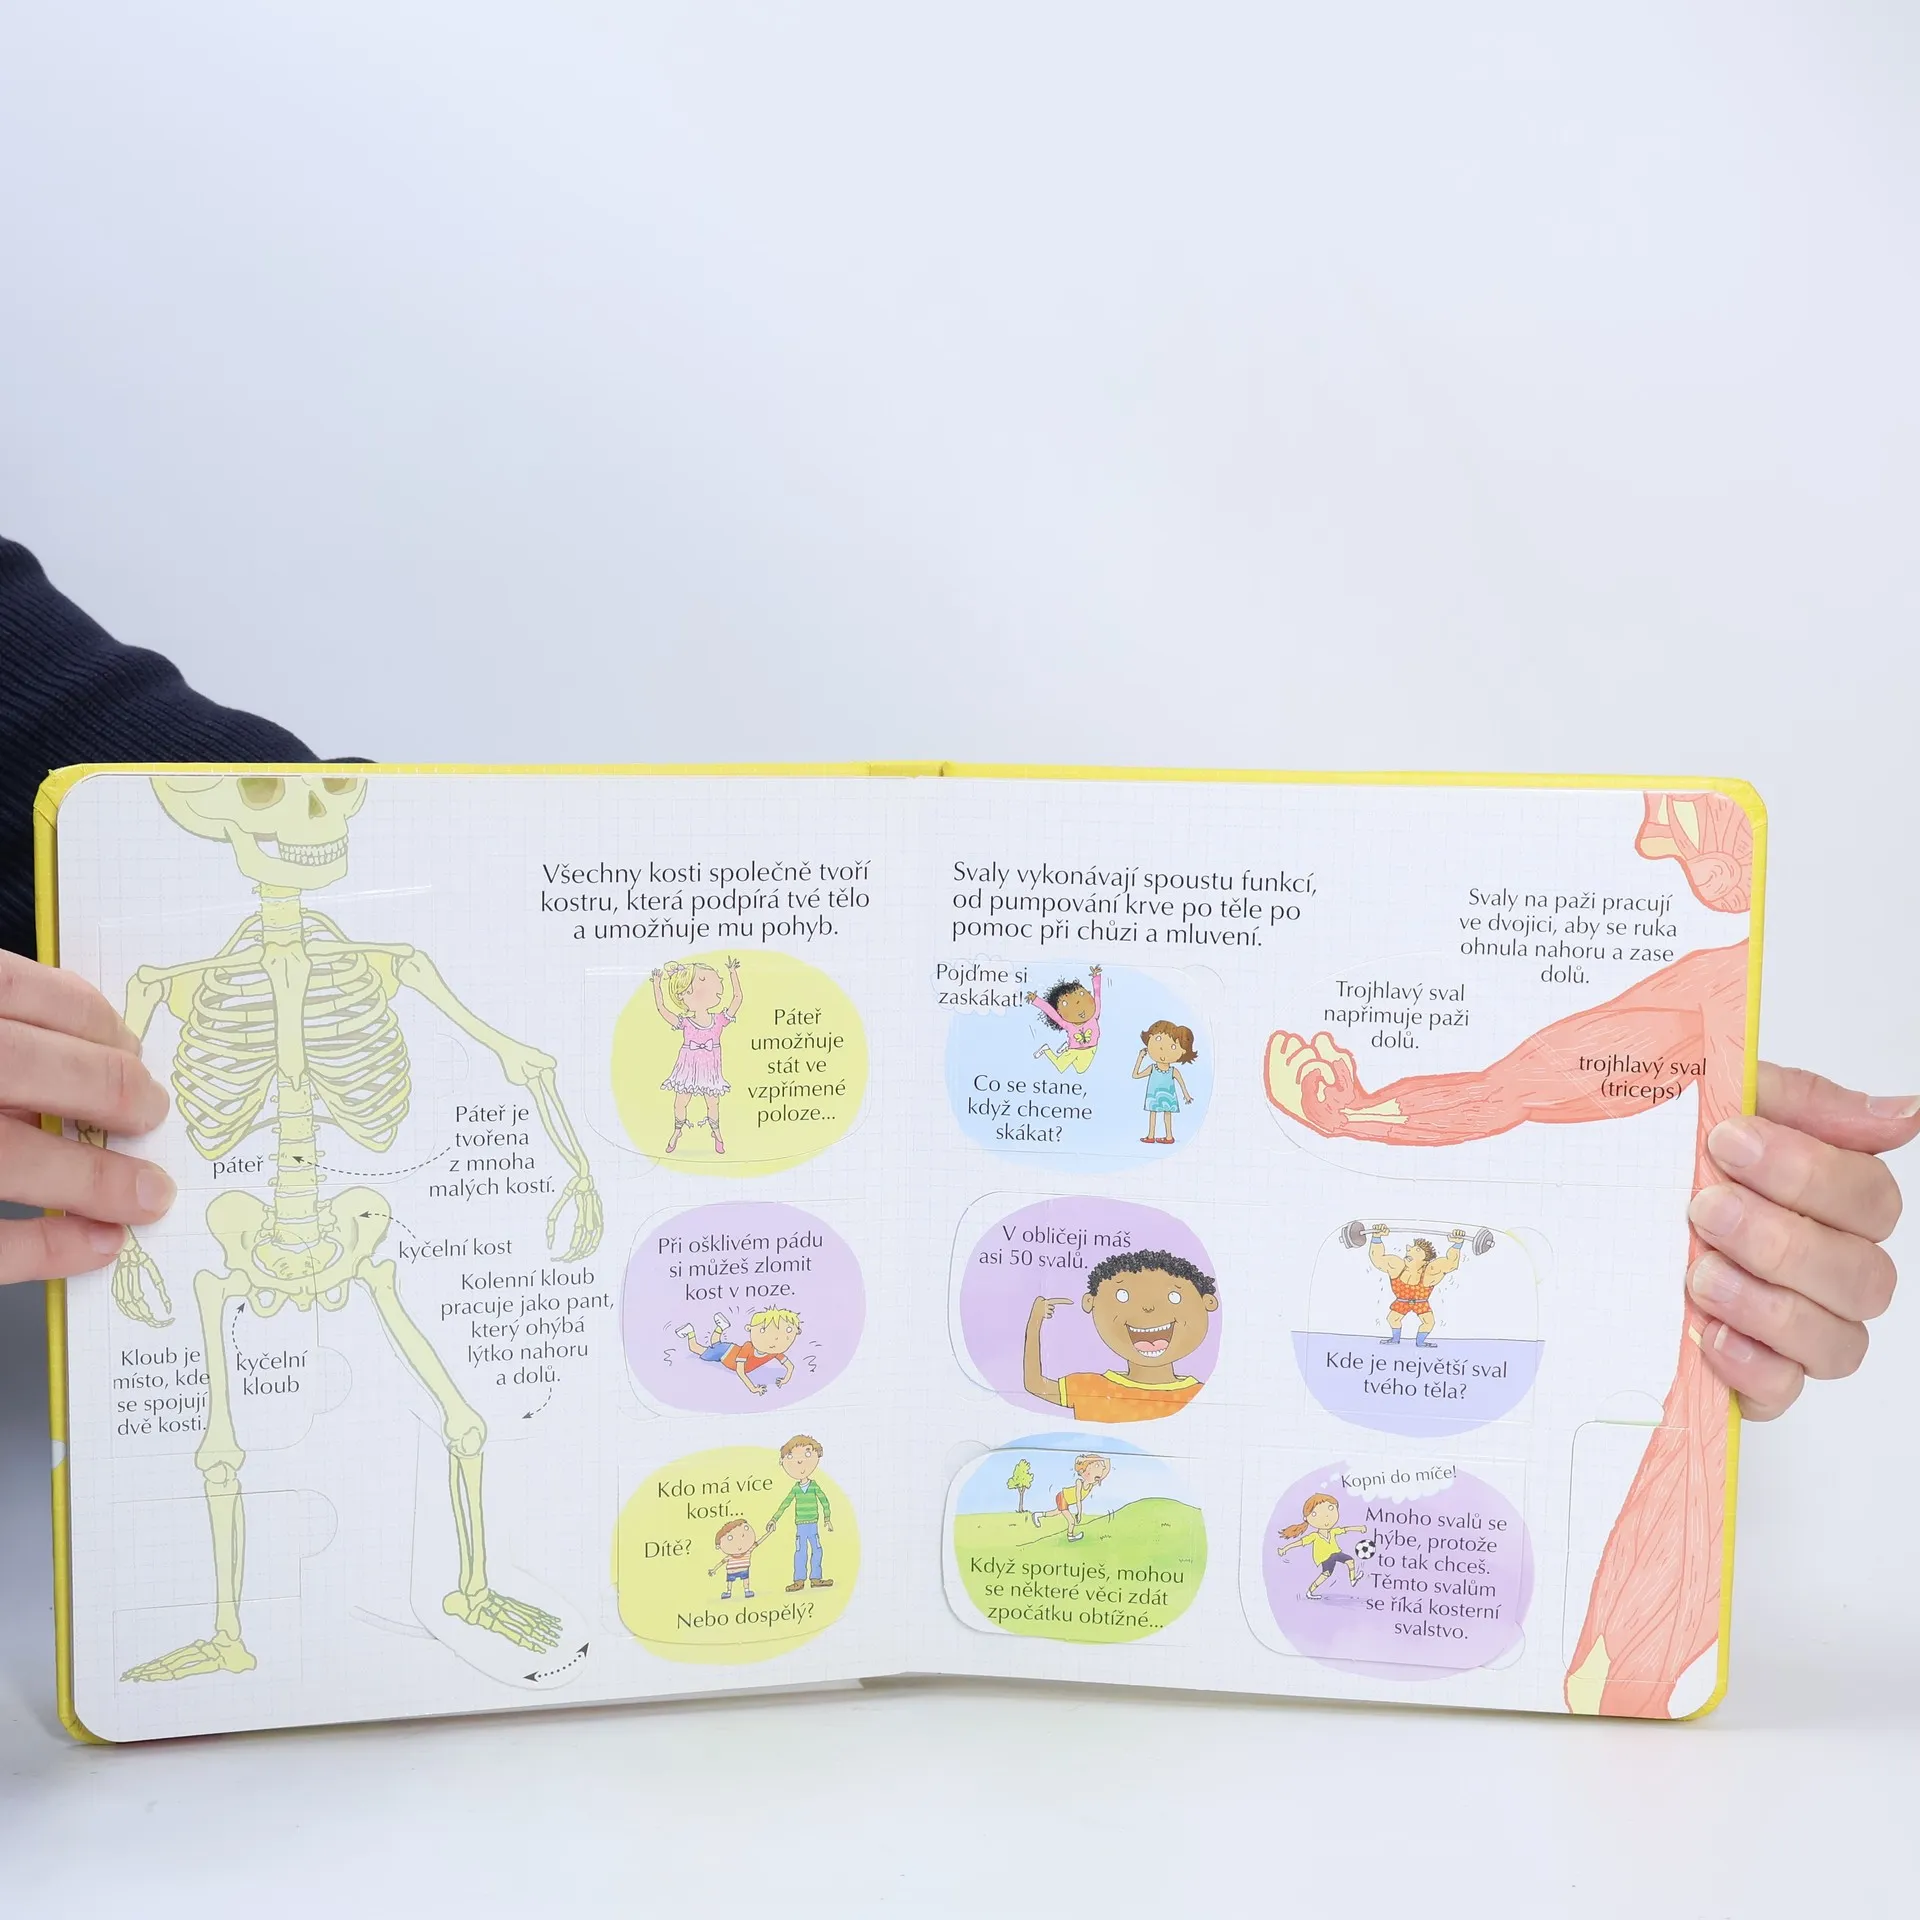 Všechny kosti společně tvoří
kostru, která podpírá tvé tělo
a umožňuje mu pohyb.
Páteř
umožňuje
stát ve
vzpřímené
poloze...
Páteř je
tvořena
z mnoha
malých kostí.
páteř
kyčelní kost
Kolenní kloub
pracuje jako pant,
který ohýbá
lýtko nahoru
a dolů.
Kloub je
místo, kde
se spojují
dvě kosti.
kyčelní
kloub
Při ošklivém pádu
si můžeš zlomit
kost v noze.
Kdo má více
kostí...
Dítě?
Nebo dospělý?
Svaly vykonávají spoustu funkcí,
od pumpování krve po těle po
pomoc při chůzi a mluvení.
Pojďme si
zaskákat!
Co se stane,
když chceme
skákat?
Svaly na paži pracují
ve dvojici, aby se ruka
ohnula nahoru a zase
dolů.
Trojhlavý sval
napřimuje paži
dolů.
trojhlavý sval
(triceps)
V obličeji máš
asi 50 svalů.
Kde je největší sval
tvého těla?
Když sportuješ, mohou
se některé věci zdát
zpočátku obtížné...
Kopni do míče!
Mnoho svalů se
hýbe, protože
to tak chceš.
Těmto svalům
se říká kosterní
svalstvo.